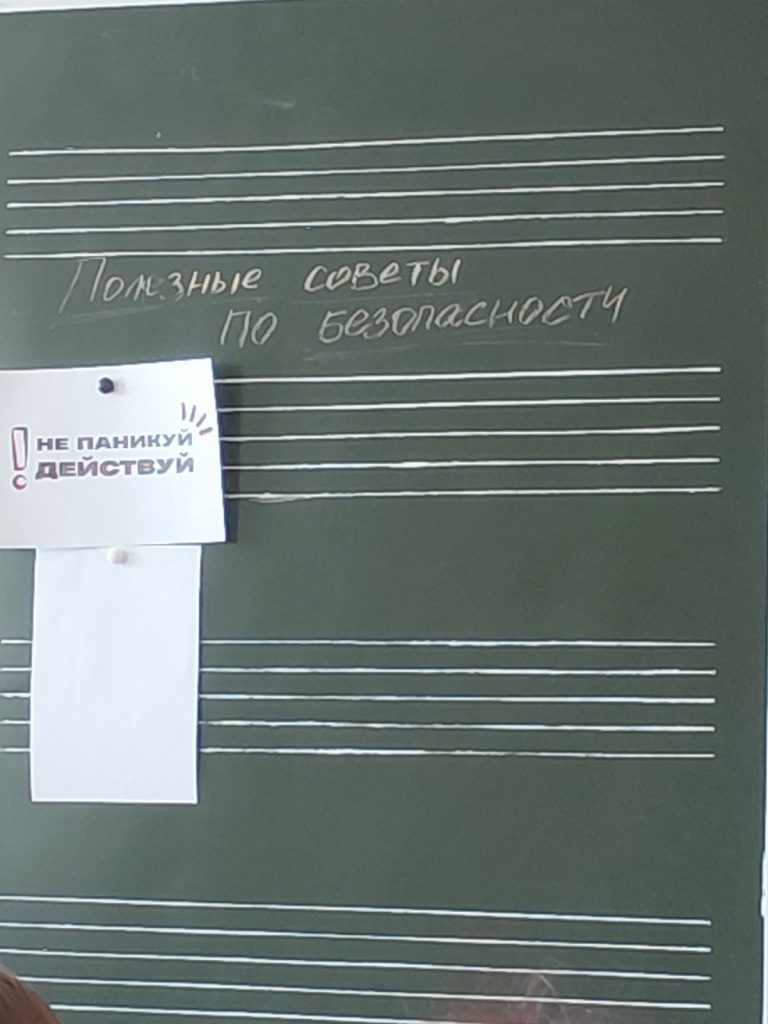 Полезные советы
по безопасности
НЕ ПАНИКУЙ
ДЕЙСТВУЙ